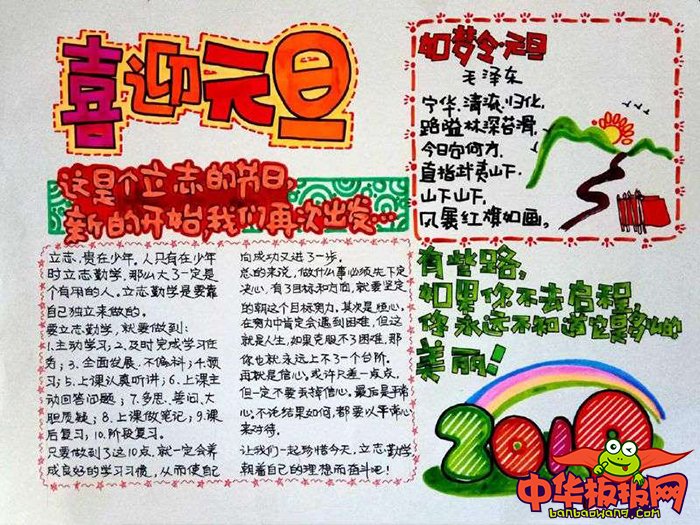 喜迎元旦
这是个立志的节日,
新的开始,我们再次出发…
立志,贵在少年。人只有在少年
时立志勤学,那么大了一定是
个有用的人。立志勤学是要靠
自己独立来做的。
要立志勤学,就要做到:
1.主动学习;2.及时完成学习任
务;3.全面发展、不偏科;4.预
习;5.上课认真听讲;6.上课主
动回答问题;7.多思、善问、大
胆质疑;8.上课做笔记;9.课
后复习;10.阶段复习。
只要做到了这10点,就一定会养
成良好的学习习惯,从而使自己
向成功又进了一步。
总的来说,做什么事必须先下定
决心,有了目标和方向,就要坚定
的朝这个目标努力。其次是恒心,
在努力中肯定会遇到困难,但这
就是人生,如果克服不了困难,那
你也就永远上不了一个台阶。
再就是信心,或许只差一点点,
但一定不要丢掉信心。最后是平常
心,不论结果如何,都要以平常心
来对待。
让我们一起珍惜今天,立志勤学
朝着自己的理想而奋斗吧!
如梦令·元旦
毛泽东
宁化、清流、归化,
路隘林深苔滑。
今日向何方,
直指武夷山下。
山下山下,
风展红旗如画。
有些路,
如果你不去启程,
你永远不知道它是多么的
美丽!
2018
中华板报网
banbaowang.com